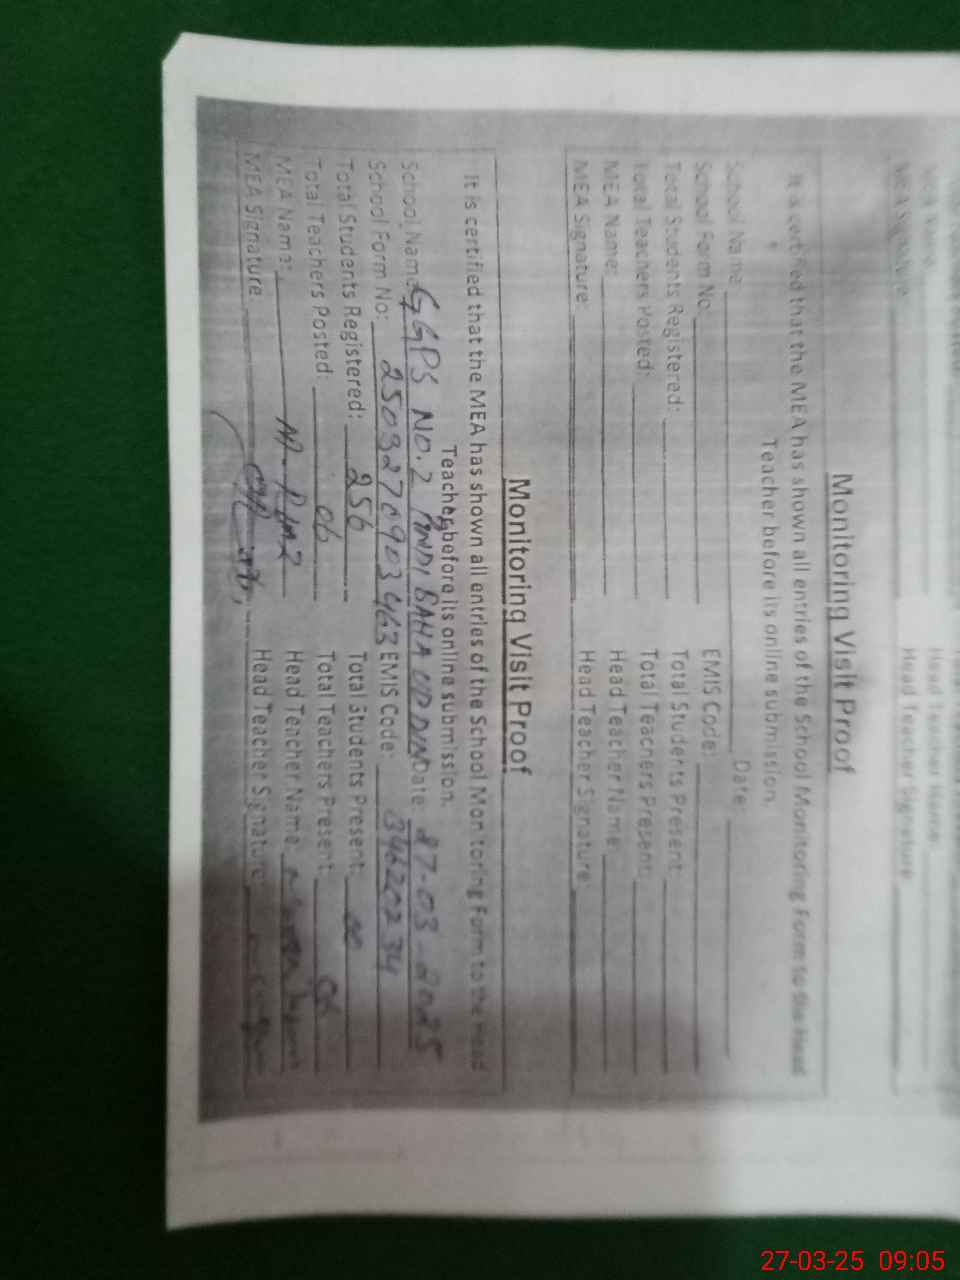 Head Teacher Name:
MEA Signature: Head Teacher Signature:
Monitoring Visit Proof
It is certified that the MEA has shown all entries of the School Monitoring Form to the Head
Teacher before its online submission.
School Name: Date:
School Form No: EMIS Code:
Total Students Registered: Total Students Present:
Total Teachers Posted: Total Teachers Present:
MEA Name: Head Teacher Name:
MEA Signature: Head Teacher Signature:
Monitoring Visit Proof
It is certified that the MEA has shown all entries of the School Monitoring Form to the Head
Teacher before its online submission.
School Name: GGPS NO.2 PINDI BAHA UD DIN Date 27-03-2025
School Form No: 2503276903463 EMIS Code: 34620234
Total Students Registered: 256 Total Students Present: 00
Total Teachers Posted: 06 Total Teachers Present: 06
MEA Name: Head Teacher Name:
MEA Signature Head Teacher Signature:
27-03-25 09:05